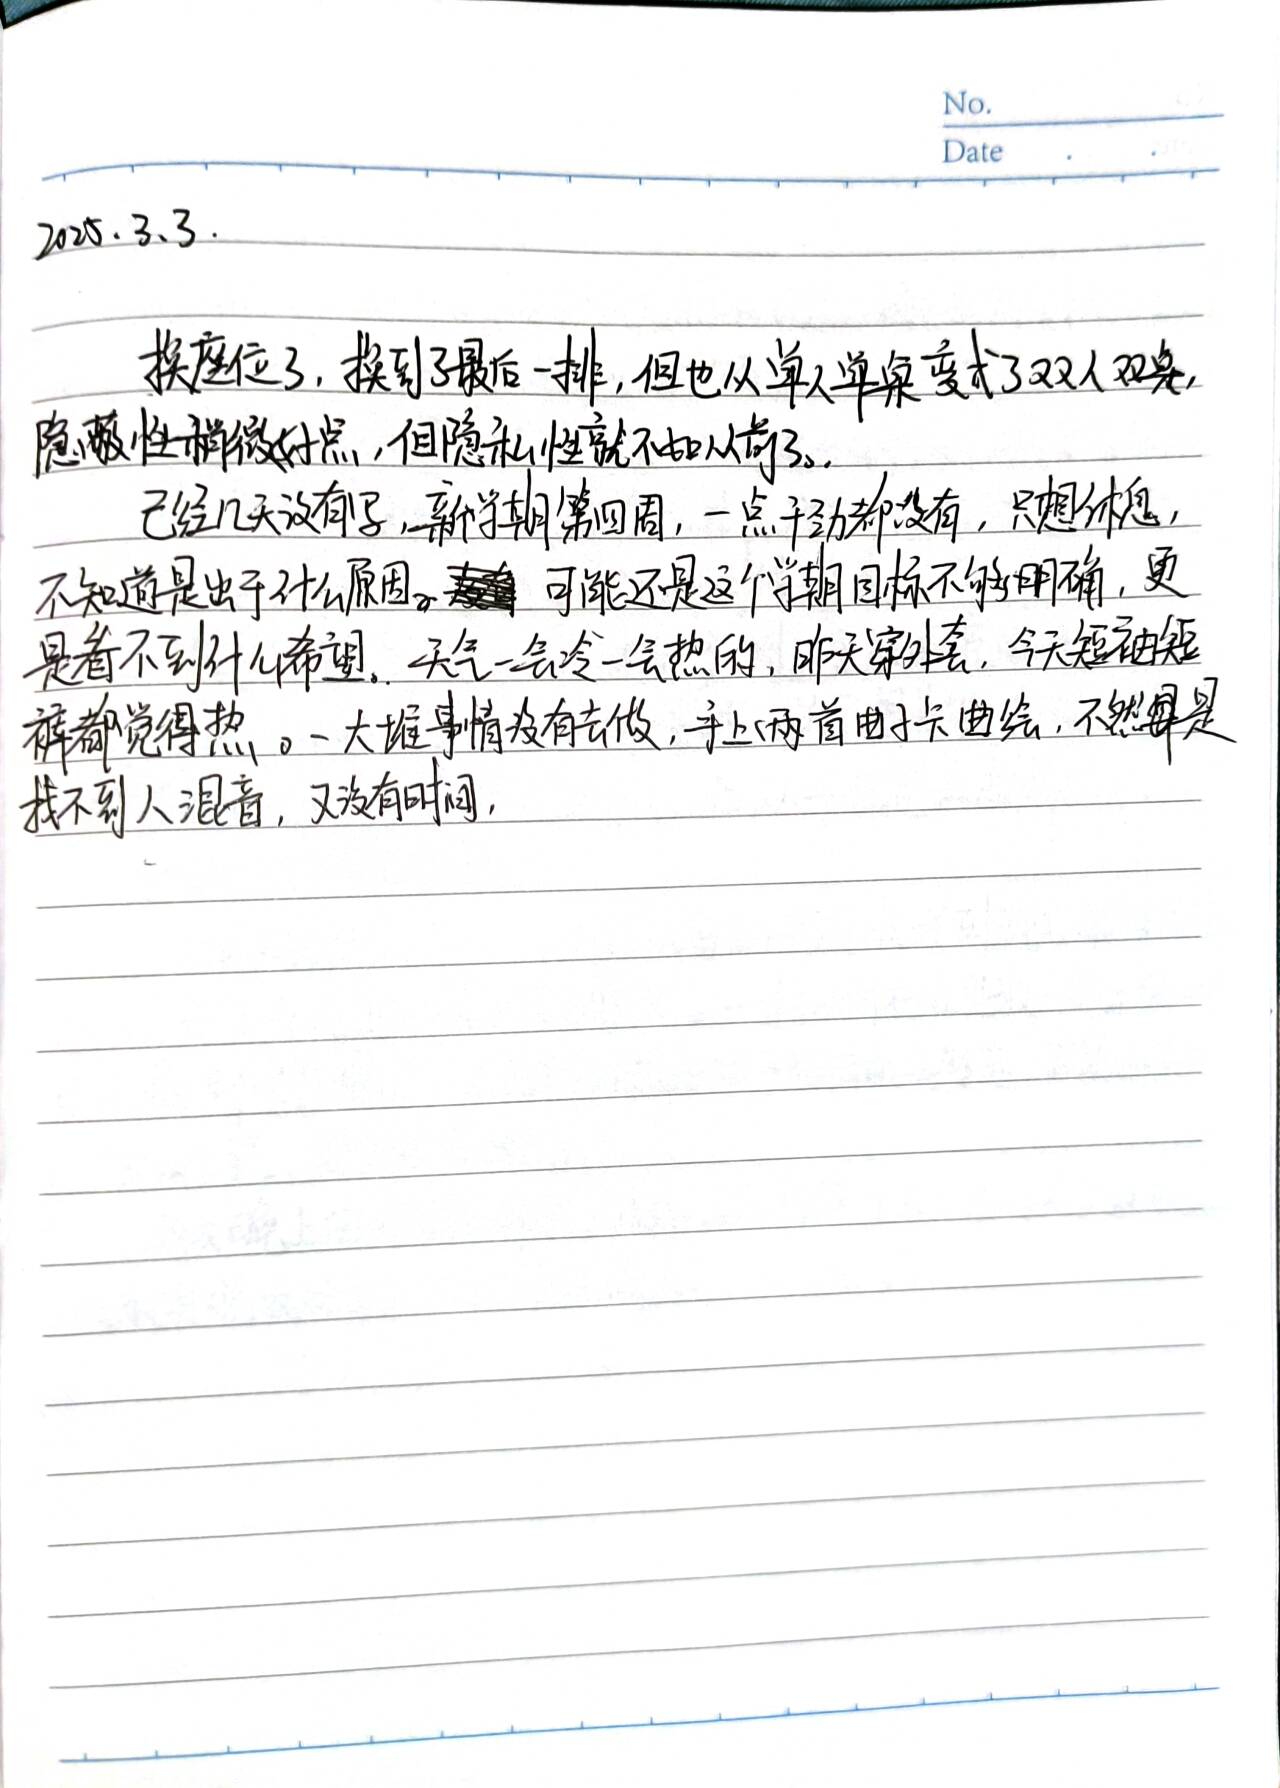 No.
Date
2025.3.3.
换座位了，换到了最后一排，但也从单人单桌变成了双人双桌，
隐蔽性稍微好点，但隐私性就不如从前了。
已经几天没有写，新学期第四周，一点干劲都没有，只想休息，
不知道是出于什么原因。可能还是这个学期目标不够明确，更
是看不到什么希望。天气一会冷一会热的，昨天穿外套，今天短袖短
裤都觉得热。一大堆事情没有去做，手上两首曲子卡曲绘，不然是
找不到人混音，又没有时间，